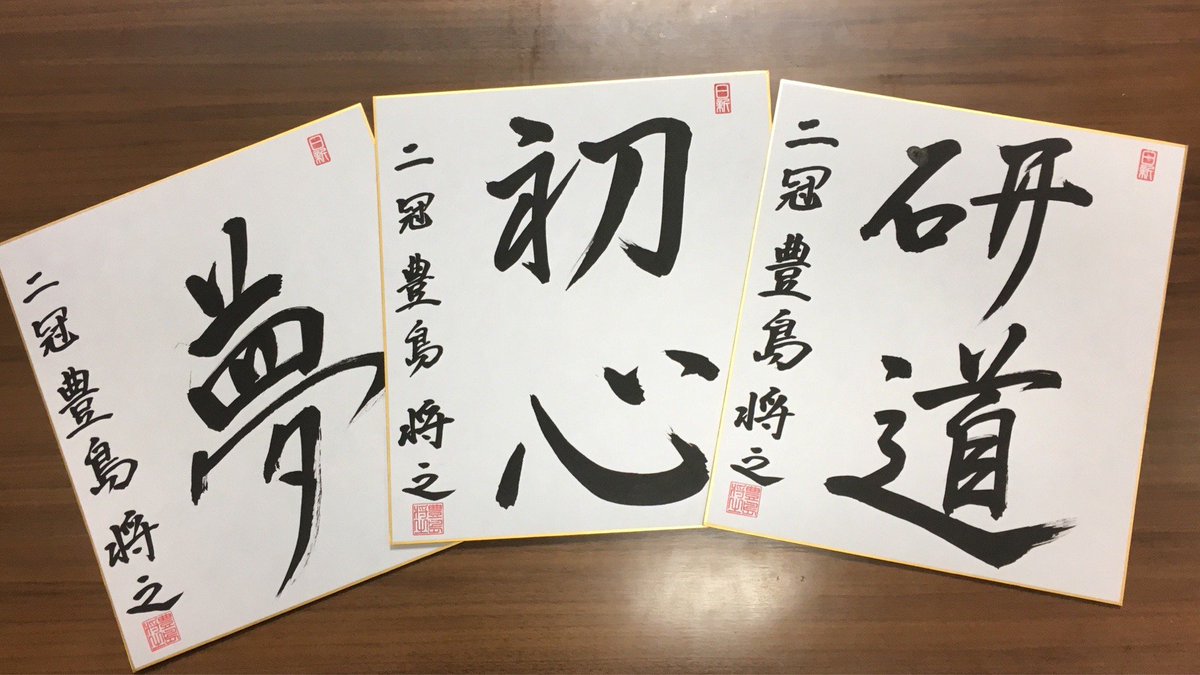 日新
夢
二冠 豊島 将之
豊島
将之
日新
初心
二冠 豊島 将之
豊島
将之
日新
研道
二冠 豊島 将之
豊島
将之